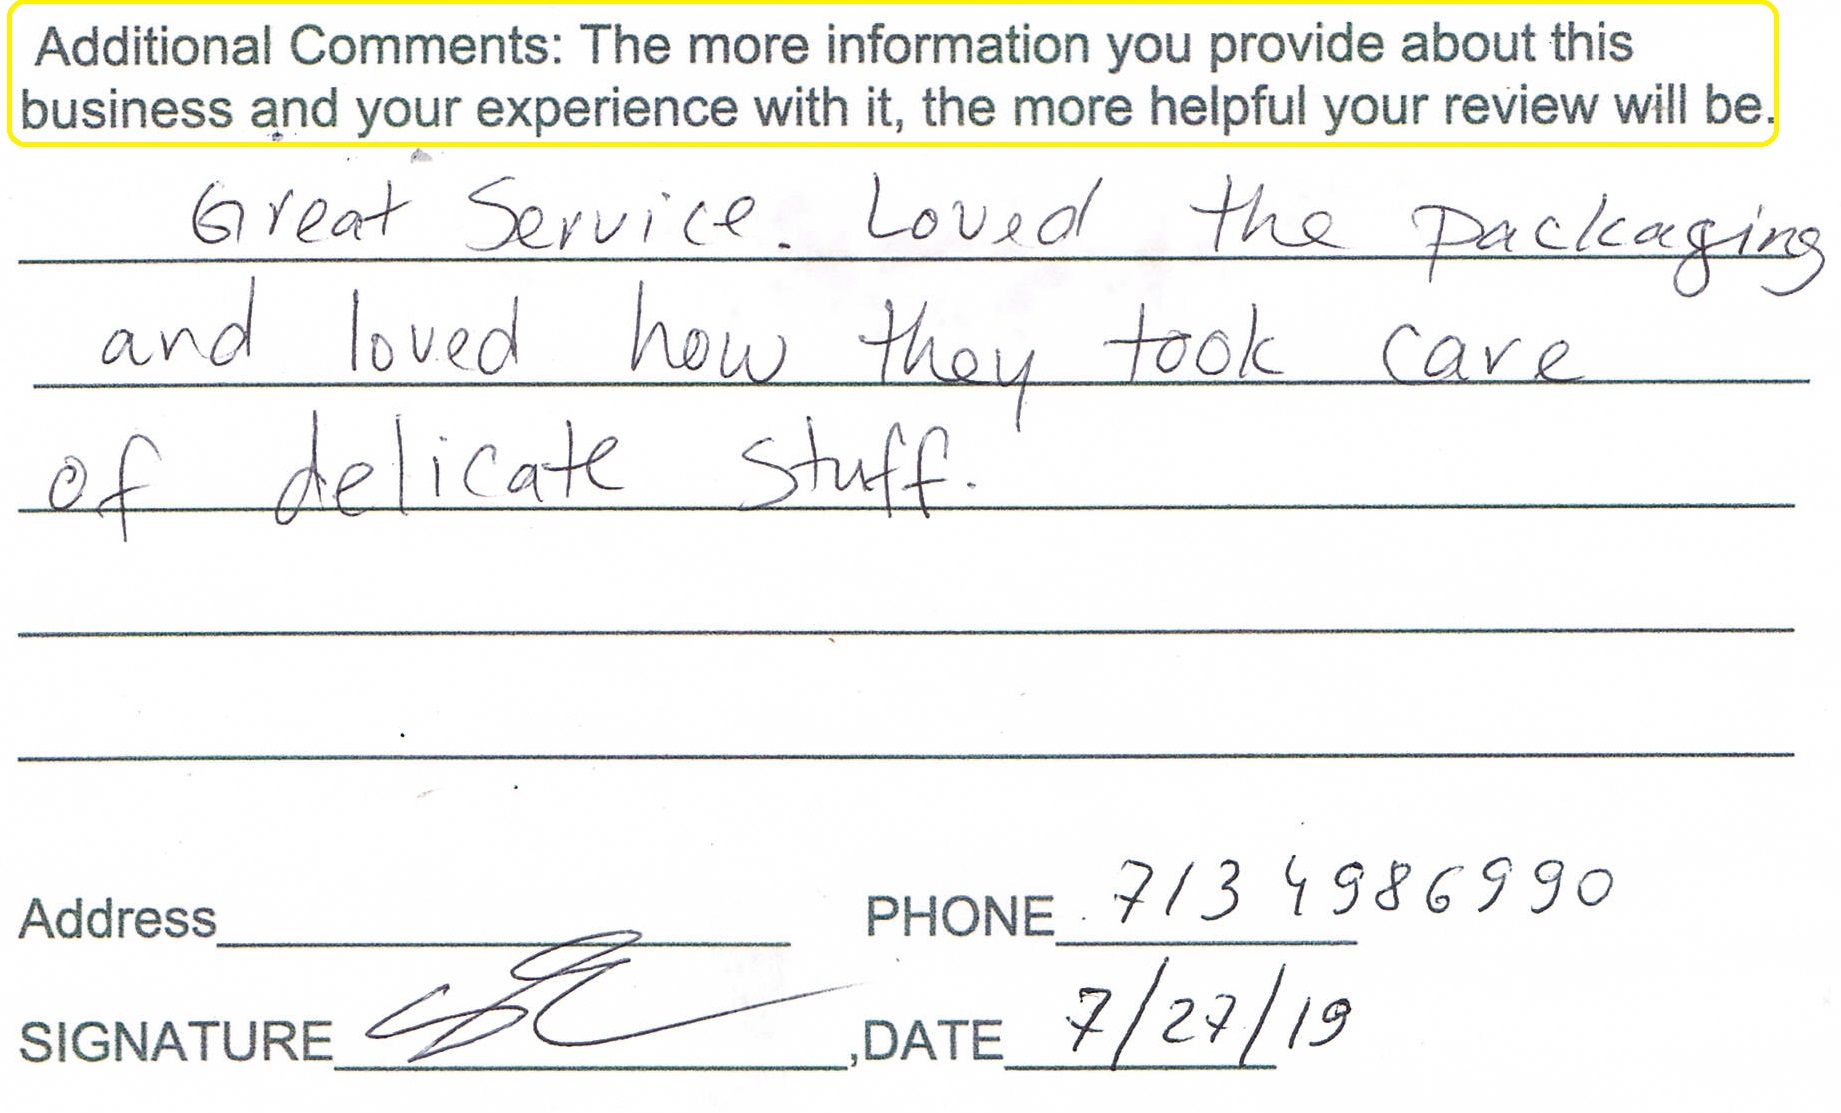 Additional Comments: The more information you provide about this
business and your experience with it, the more helpful your review will be.
Great Service. Loved the packaging
and loved how they took care
of delicate stuff.
Address
PHONE 713 4986990
SIGNATURE
,DATE 7/27/19